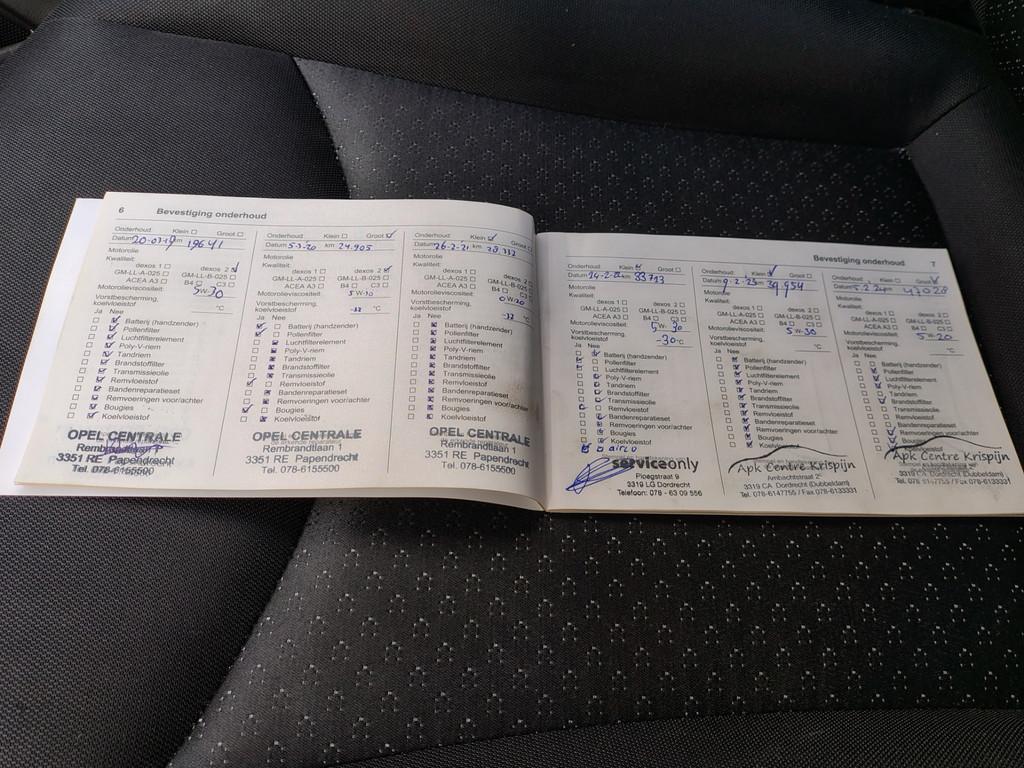 6 Bevestiging onderhoud
Onderhoud: Klein ☐ Groot ☐
Datum 20-03-19 km 19641
Motorolie
Kwaliteit:
dexos 1 ☐ dexos 2 ☑
GM-LL-A-025 ☐ GM-LL-B-025 ☐
ACEA A3 ☐ B4 ☐ C3 ☐
Motorolieviscositeit: 5W-30
Vorstbescherming,
koelvloeistof °C
Ja Nee
Batterij (handzender)
Pollenfilter
Luchtfilterelement
Poly-V-riem
Tandriem
Brandstoffilter
Transmissieolie
Remvloeistof
Bandenreparatieset
Remvoeringen voor/achter
Bougies
Koelvloeistof
OPEL CENTRALE
Rembrandtlaan 1
3351 RE Papendrecht
Tel. 078-6155500
Onderhoud: Klein ☐ Groot ☑
Datum 5-3-20 km 24.905
Motorolie
Kwaliteit:
dexos 1 ☐ dexos 2 ☑
GM-LL-A-025 ☐ GM-LL-B-025 ☐
ACEA A3 ☐ B4 ☐ C3 ☐
Motorolieviscositeit: 5W-30
Vorstbescherming,
koelvloeistof -32 °C
Ja Nee
Batterij (handzender)
Pollenfilter
Luchtfilterelement
Poly-V-riem
Tandriem
Brandstoffilter
Transmissieolie
Remvloeistof
Bandenreparatieset
Remvoeringen voor/achter
Bougies
Koelvloeistof
OPEL CENTRALE
Rembrandtlaan 1
3351 RE Papendrecht
Tel. 078-6155500
Onderhoud: Klein ☑ Groot ☐
Datum 26-2-21 km
Motorolie
Kwaliteit:
dexos 1 ☐ dexos 2 ☐
GM-LL-A-025 ☐ GM-LL-B-025 ☐
ACEA A3 ☐ B4 ☐ C3 ☐
Motorolieviscositeit: 0W20
Vorstbescherming,
koelvloeistof -32 °C
Ja Nee
Batterij (handzender)
Pollenfilter
Luchtfilterelement
Poly-V-riem
Tandriem
Brandstoffilter
Transmissieolie
Remvloeistof
Bandenreparatieset
Remvoeringen voor/achter
Bougies
Koelvloeistof
OPEL CENTRALE
Rembrandtlaan 1
3351 RE Papendrecht
Tel. 078-6155500
Bevestiging onderhoud 7
Onderhoud: Klein ☑ Groot ☐
Datum 24-2-22 km 33713
Motorolie
Kwaliteit:
dexos 1 ☐ dexos 2 ☐
GM-LL-A-025 ☐ GM-LL-B-025 ☐
ACEA A3 ☐ B4 ☐ C3 ☐
Motorolieviscositeit: 5W-30
Vorstbescherming,
koelvloeistof -30 °C
Ja Nee
Batterij (handzender)
Pollenfilter
Luchtfilterelement
Poly-V-riem
Tandriem
Brandstoffilter
Transmissieolie
Remvloeistof
Bandenreparatieset
Remvoeringen voor/achter
Bougies
Koelvloeistof
airco
serviceonly
Ploegstraat 9
3319 LG Dordrecht
Telefoon: 078 - 63 09 556
Onderhoud: Klein ☑ Groot ☐
Datum 9-2-23 km 39954
Motorolie
Kwaliteit:
dexos 1 ☐ dexos 2 ☐
GM-LL-A-025 ☐ GM-LL-B-025 ☐
ACEA A3 ☐ B4 ☐ C3 ☐
Motorolieviscositeit: 5W-30
Vorstbescherming,
koelvloeistof °C
Ja Nee
Batterij (handzender)
Pollenfilter
Luchtfilterelement
Poly-V-riem
Tandriem
Brandstoffilter
Transmissieolie
Remvloeistof
Bandenreparatieset
Remvoeringen voor/achter
Bougies
Koelvloeistof
Apk Centre Krispijn
Ambachtstraat 2
3319 CA Dordrecht (Dubbeldam)
Tel. 078-6147755 / Fax 078-6133331
Onderhoud: Klein ☐ Groot ☑
Datum km 47028
Motorolie
Kwaliteit:
dexos 1 ☐ dexos 2 ☐
GM-LL-A-025 ☐ GM-LL-B-025 ☐
ACEA A3 ☐ B4 ☐ C3 ☐
Motorolieviscositeit: 5W-20
Vorstbescherming,
koelvloeistof °C
Ja Nee
Batterij (handzender)
Pollenfilter
Luchtfilterelement
Poly-V-riem
Tandriem
Brandstoffilter
Transmissieolie
Remvloeistof
Bandenreparatieset
Remvoeringen voor/achter
Bougies
Koelvloeistof
Apk Centre Krispijn
3319 CA Dordrecht (Dubbeldam)
Tel. 078-6147755 / Fax 078-6133331